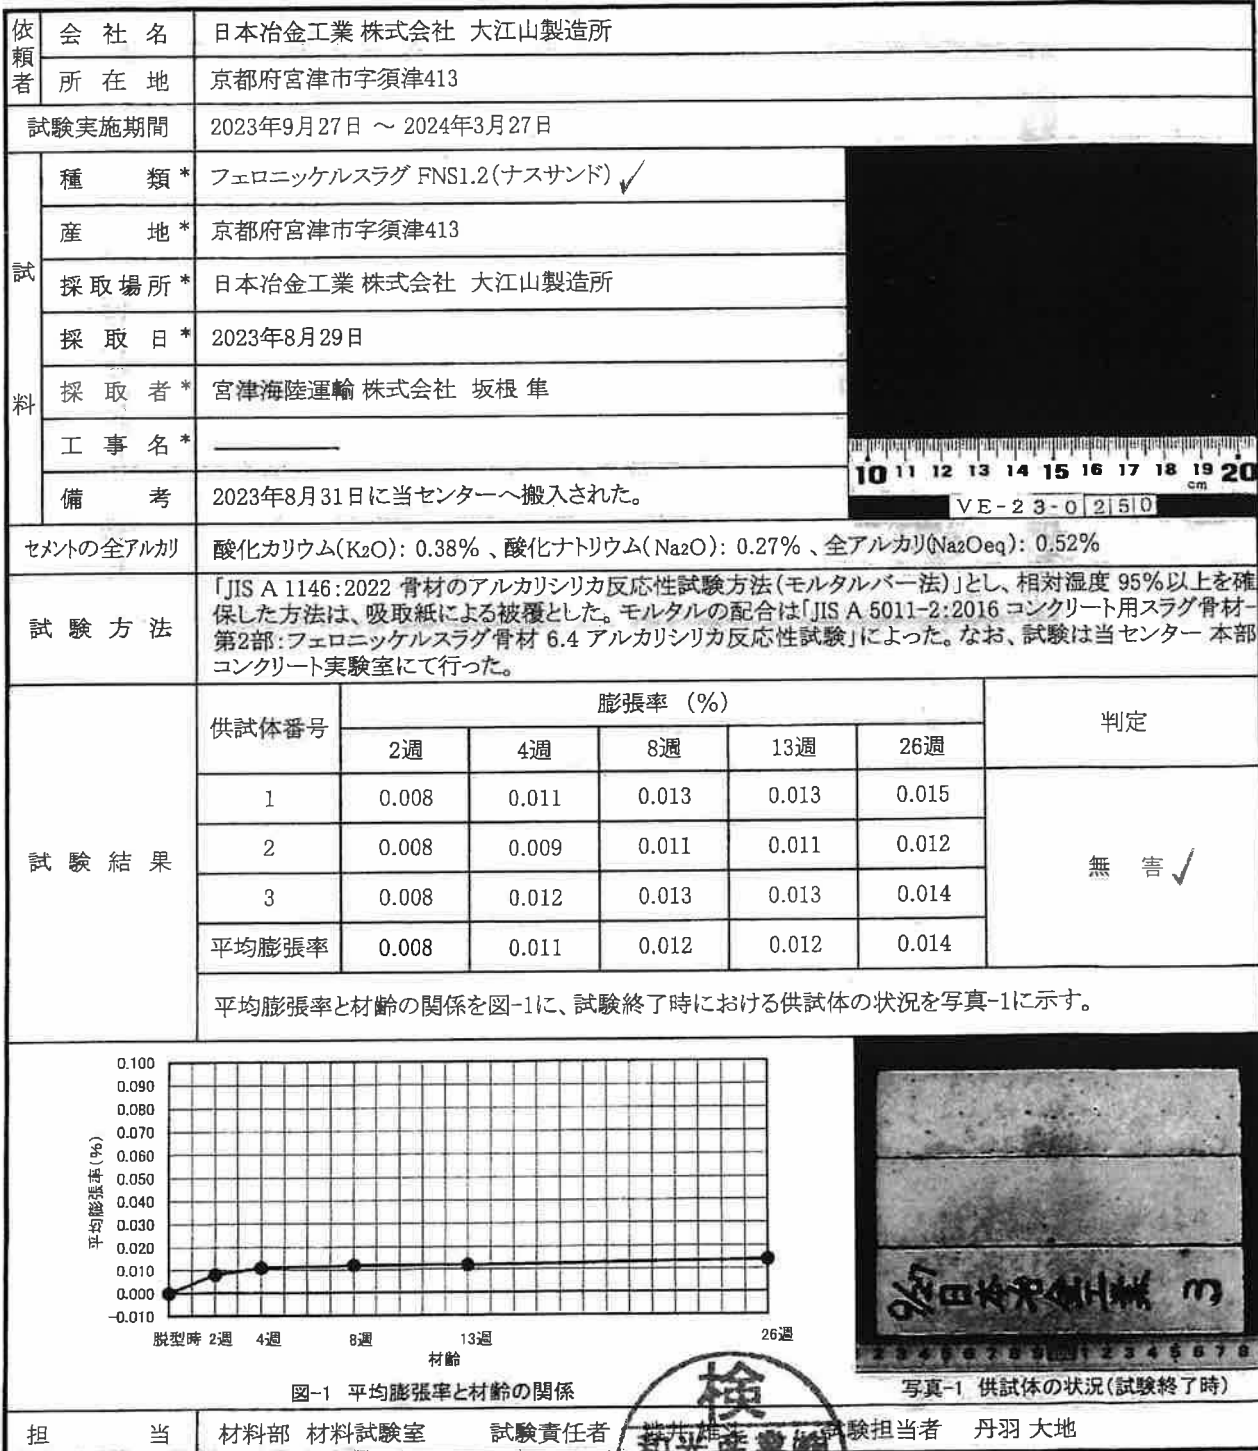 依頼者
会社名 日本冶金工業 株式会社 大江山製造所
所在地 京都府宮津市字須津413
試験実施期間 2023年9月27日 ～ 2024年3月27日
試料
種類* フェロニッケルスラグ FNS1.2(ナスサンド)✓
産地* 京都府宮津市字須津413
採取場所* 日本冶金工業 株式会社 大江山製造所
採取日* 2023年8月29日
採取者* 宮津海陸運輸 株式会社 坂根 隼
工事名* ―――
備考 2023年8月31日に当センターへ搬入された。
10 11 12 13 14 15 16 17 18 19 20
cm
VE-23-0250
セメントの全アルカリ 酸化カリウム(K2O): 0.38% 、酸化ナトリウム(Na2O): 0.27% 、全アルカリ(Na2Oeq): 0.52%
試験方法
「JIS A 1146:2022 骨材のアルカリシリカ反応性試験方法(モルタルバー法)」とし、相対湿度 95%以上を確
保した方法は、吸取紙による被覆とした。モルタルの配合は「JIS A 5011-2:2016 コンクリート用スラグ骨材-
第2部:フェロニッケルスラグ骨材 6.4 アルカリシリカ反応性試験」によった。なお、試験は当センター 本部
コンクリート実験室にて行った。
試験結果
供試体番号 膨張率 (%) 判定
2週 4週 8週 13週 26週
1 0.008 0.011 0.013 0.013 0.015
2 0.008 0.009 0.011 0.011 0.012
3 0.008 0.012 0.013 0.013 0.014
平均膨張率 0.008 0.011 0.012 0.012 0.014
無害✓
平均膨張率と材齢の関係を図-1に、試験終了時における供試体の状況を写真-1に示す。
平均膨張率(%)
0.100
0.090
0.080
0.070
0.060
0.050
0.040
0.030
0.020
0.010
0.000
-0.010
脱型時 2週 4週 8週 13週 26週
材齢
図-1 平均膨張率と材齢の関係
9/27 日本冶金工業 3
2 3 4 5 6 7 8 9 1 2 3 4 5 6 7 8
写真-1 供試体の状況(試験終了時)
検
担当 材料部 材料試験室 試験責任者 試験担当者 丹羽 大地